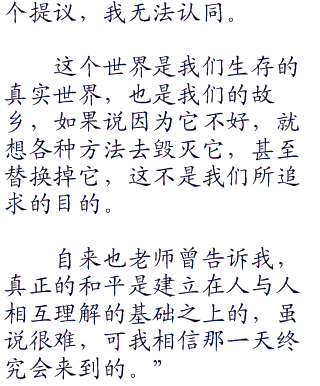 个提议，我无法认同。
这个世界是我们生存的
真实世界，也是我们的故
乡，如果说因为它不好，就
想各种方法去毁灭它，甚至
替换掉它，这不是我们所追
求的目的。
自来也老师曾告诉我，
真正的和平是建立在人与人
相互理解的基础之上的，虽
说很难，可我相信那一天终
究会来到的。”